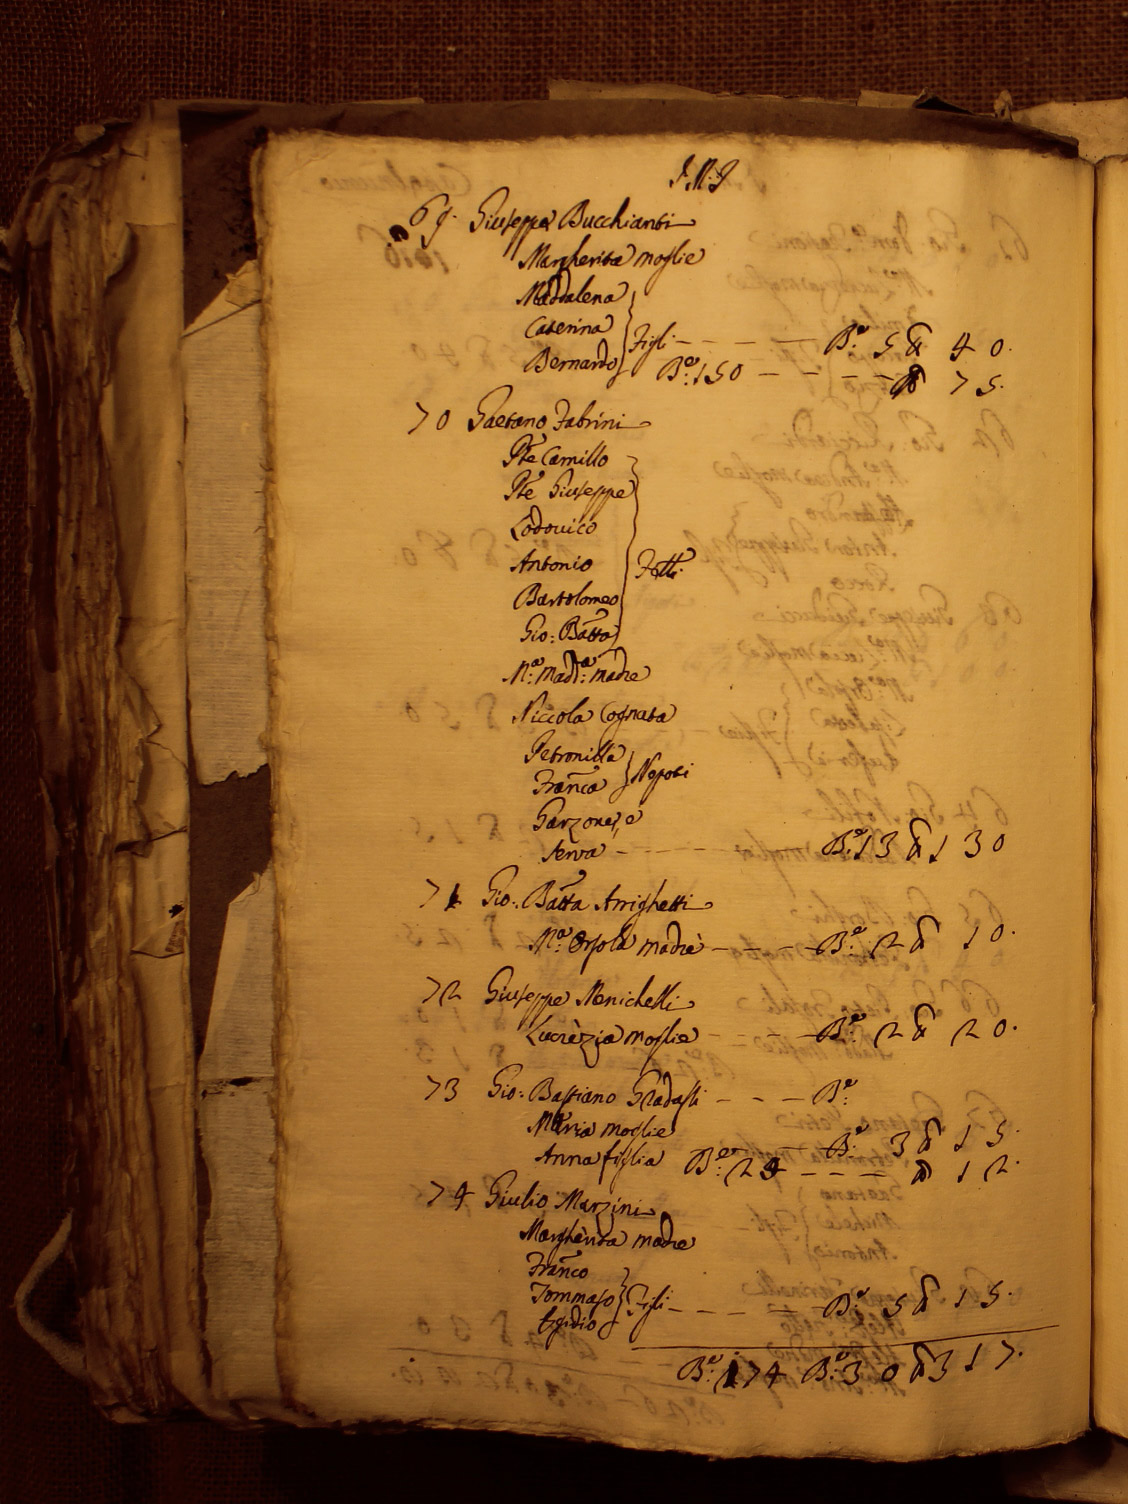 J. M. J
69. Giuseppe Bucchianti
Margherita moglie
Maddalena
Caterina
Bernardo } figli - - - - - Be: 5 & 40.
Be: 150 - - - - - & 75.
70 Gaetano Fabrini
Pte Camillo
Pte Giuseppe
Lodovico
Antonio } Ftlli
Bartolomeo
Gio: Batta
Ma: Madla: madre
Niccola Cognata
Petronilla
Franca } Nepoti
Garzone, e
serva - - - - - - - Be: 13 & 130
71 Gio: Batta Arrighetti
Ma: Orsola madre - - - - Be: 2 & 10.
72 Giuseppe Menichelli
Lucrezia moglie - - - - Be: 2 & 20.
73 Gio: Bastiano Gradassi - - - Be:
Maria moglie
Anna figlia - Be: 3 & 15.
Be: 24 - - - - & 12.
74 Giulio Marzini
Margherita madre
Franco
Tommaso } Figli - - - - - Be: 5 & 15.
Egidio
Be: 174 Be: 30 & 317.